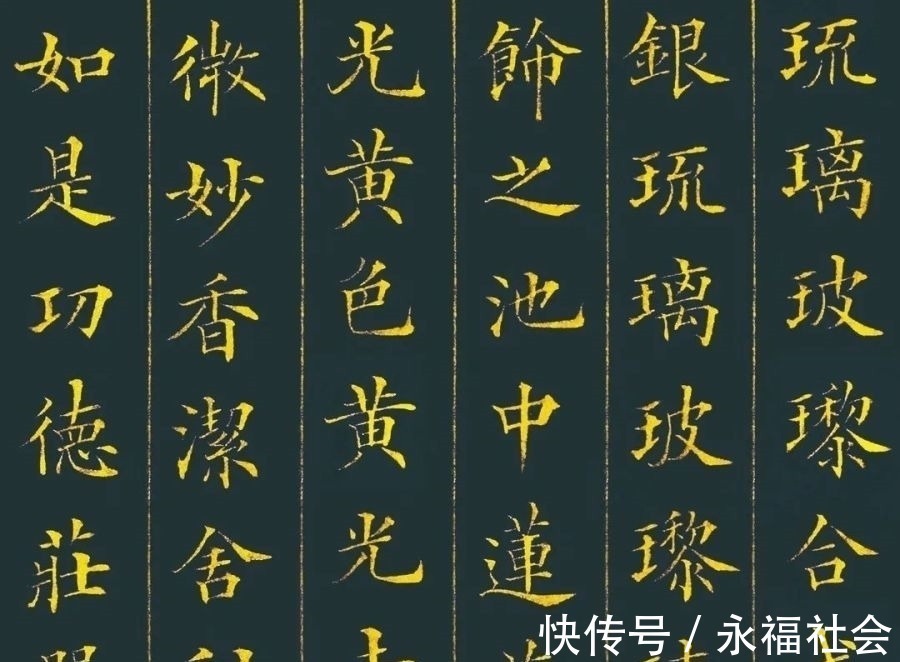 琉璃玻瓈合
銀琉璃玻瓈
飾之池中蓮
光黄色黄光
微妙香潔舍
如是功德莊
快传号 / 永福社会